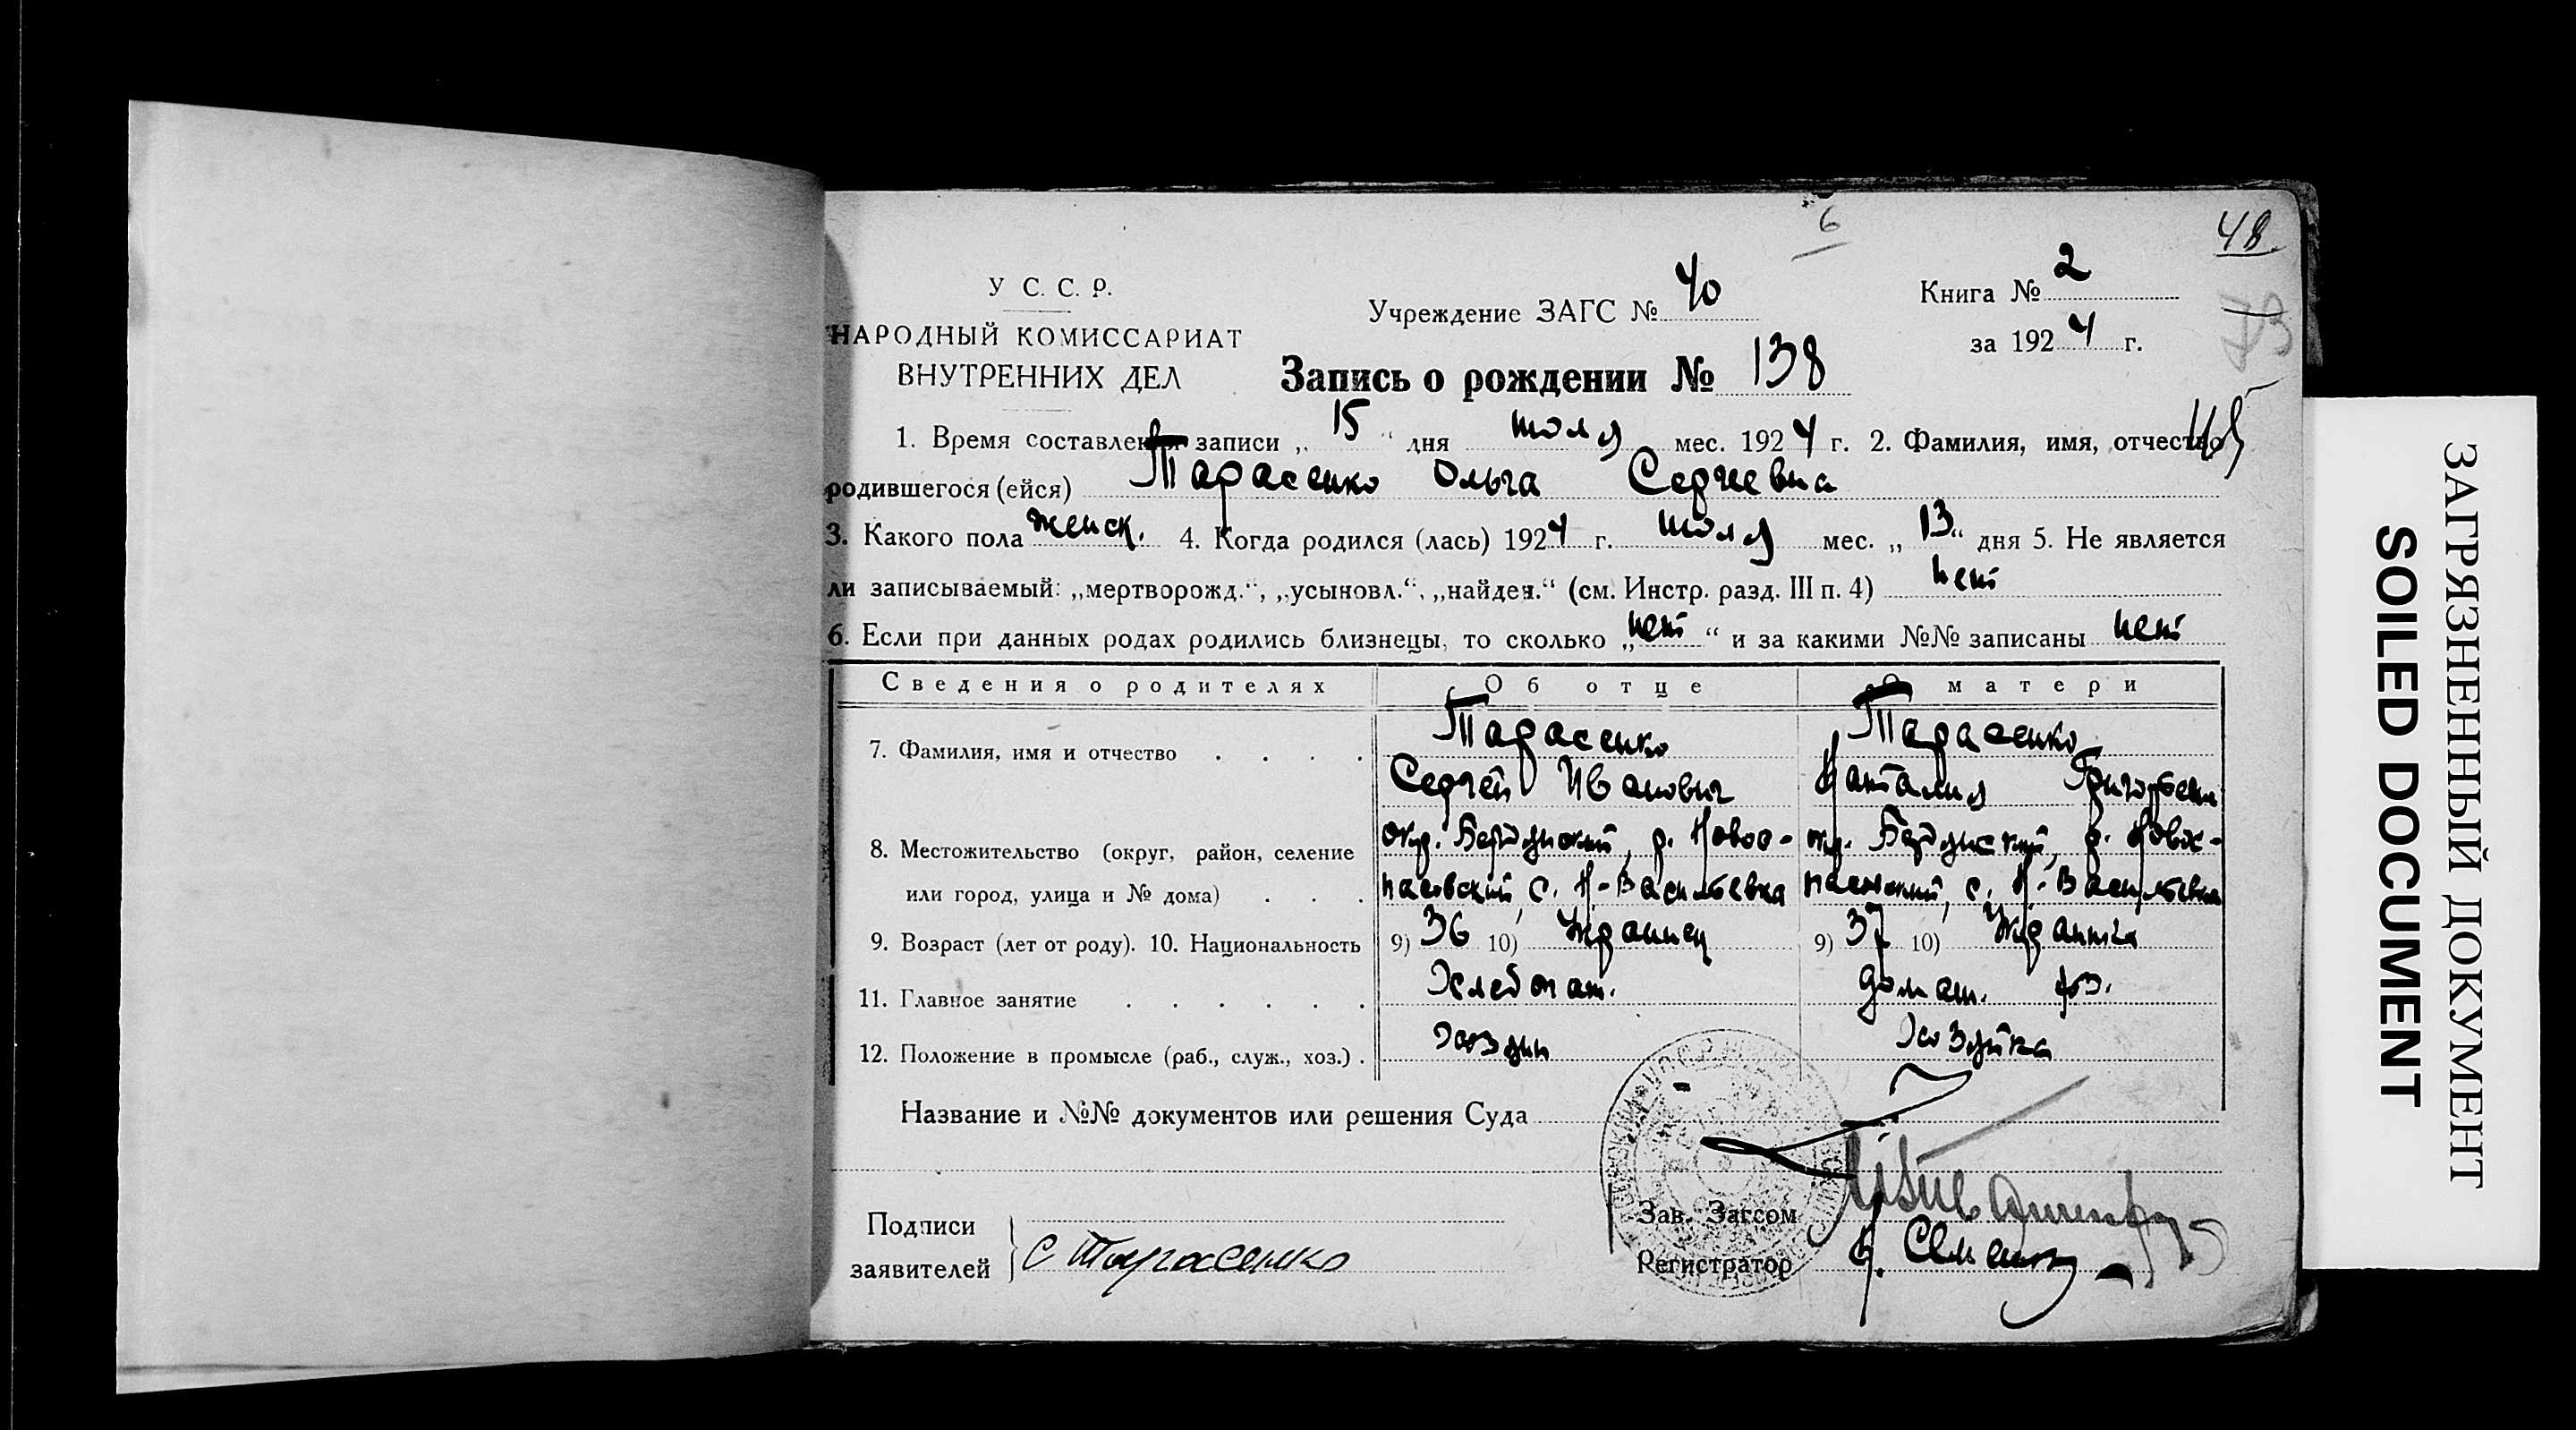 6
48
У С. С. Р.
НАРОДНЫЙ КОМИССАРИАТ
ВНУТРЕННИХ ДЕЛ
Учреждение ЗАГС № 40
Книга № 2
за 1924 г.
Запись о рождении № 138
1. Время составления записи „ 15 “ дня июля мес. 1924 г. 2. Фамилия, имя, отчество
родившегося (ейся) Тарасенко Ольга Сергеевна
3. Какого пола женск. 4. Когда родился (лась) 1924 г. июля мес. „ 13 “ дня 5. Не является
ли записываемый: „мертворожд.“, „усыновл.“, „найден.“ (см. Инстр. разд. III п. 4) нет
6. Если при данных родах родились близнецы, то сколько „ нет “ и за какими №№ записаны нет
Сведения о родителях Об отце О матери
7. Фамилия, имя и отчество . . . . Тарасенко Тарасенко
Сергей Иванович Наталия
8. Местожительство (округ, район, селение окр. Бердянский, р. Новос- окр. Бердянский, р. Новос-
или город, улица и № дома) . . . пасовский, с. Н-Васильевка пасовский, с. Н-Васильевка
9. Возраст (лет от роду). 10. Национальность 9) 36 10) Украинец 9) 37 10) Украинка
11. Главное занятие . . . . . . Хлебопаш. домаш. хоз.
12. Положение в промысле (раб., служ., хоз.) . хозяин хозяйка
Название и №№ документов или решения Суда
Подписи
заявителей С Тарасенко
Зав. Загсом
Регистратор
ЗАГРЯЗНЕННЫЙ ДОКУМЕНТ
SOILED DOCUMENT